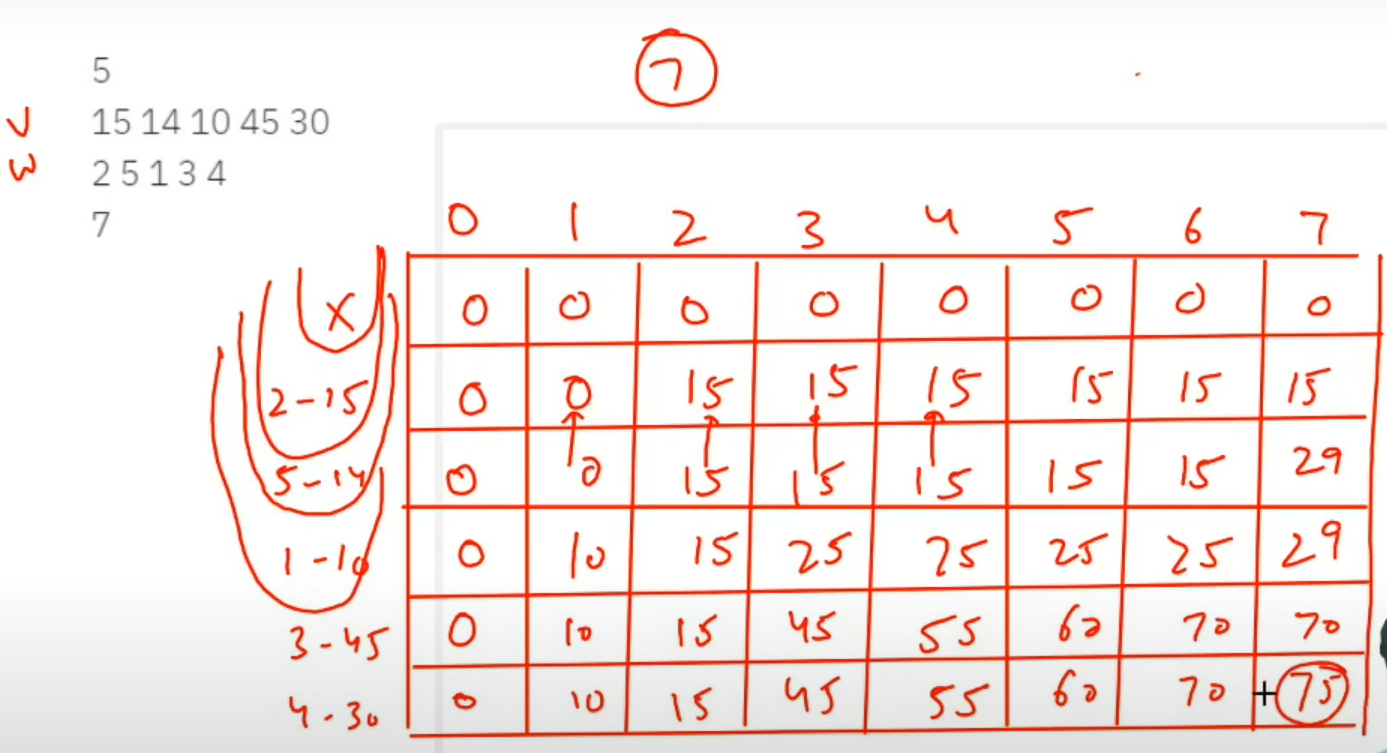 7
5
V 15 14 10 45 30
W 2 5 1 3 4
7
0 1 2 3 4 5 6 7
X 0 0 0 0 0 0 0 0
2-15 0 0 15 15 15 15 15 15
5-14 0 0 15 15 15 15 15 29
1-10 0 10 15 25 25 25 25 29
3-45 0 10 15 45 55 60 70 70
4-30 0 10 15 45 55 60 70 +75